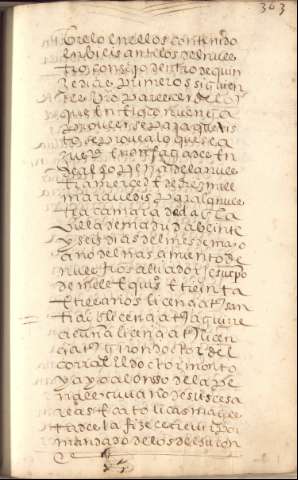 363
sobre lo en ellos contenido
enbieis ante los del nues
tro consejo dentro de quin
ze dias primeros siguien
tes vro parecer de lo
que en ello convenga
proveerse para que vis
to se provea lo que sea
justo e non fagades en
de al so pena de la nues
tra merced e de diez mill
maravedis para la nues
tra camara dada en la
villa de madrid a beinte
y seis dias del mes de mayo
año del nascimiento de
nuestro salvador jesuxpo
de mill e quis e treinta
e tres años licenciatus san
tiago licenciatus aguirre
acuña licenciatus licen
ciatus giron dotor del
corral el doctor montoya
yo alonso de la pe
ña escrivano de sus cesa
reas e catolicas mages
tades la fize escrevir por
mandado de los del su con